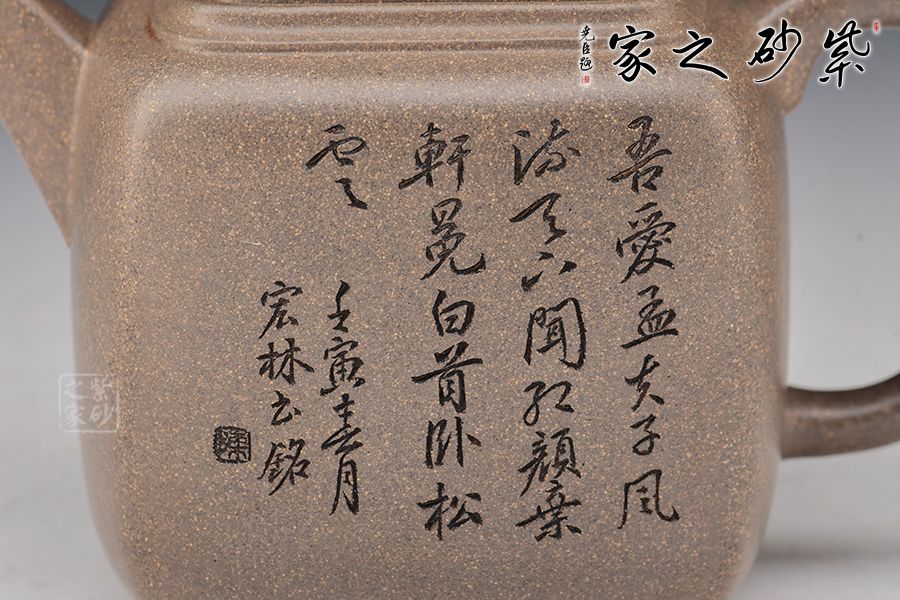 紫砂之家
堯臣題
吾愛孟夫子風
流天下聞紅顔棄
軒冕白首卧松
雲
壬寅春月
宏林書銘
紫砂
之家